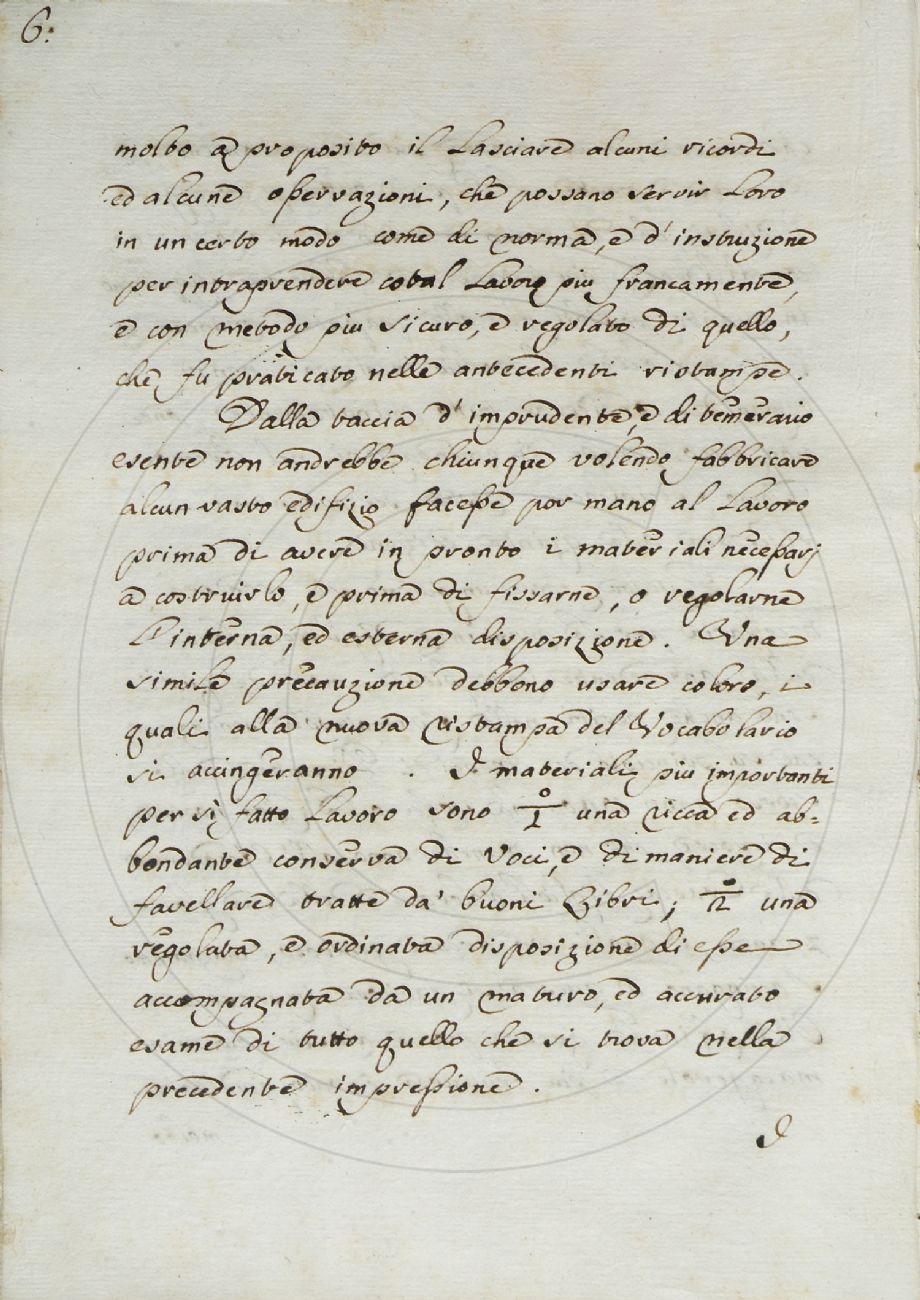 6:
molto a proposito il lasciare alcuni ricordi
ed alcune osservazioni, che possano servir loro
in un certo modo come di norma, e d'instruzione
per intraprendere cotal Lavoro più francamente,
e con metodo più sicuro, e regolato di quello,
che fu praticato nelle antecedenti ristampe.
Dalla taccia d'imprudente, e di temerario
esente non andrebbe chiunque volendo fabbricare
alcun vasto edifizio facesse por mano al Lavoro
prima di avere in pronto i materiali necessarj
a costruirlo, e prima di fissarne, o regolarne
l'interna, ed esterna disposizione. Una
simile precauzione debbono usare coloro, i
quali alla nuova ristampa del Vocabolario
si accingeranno. I materiali più importanti
per sì fatto Lavoro sono 1º una ricca ed ab=
bondante conserva di Voci, e di maniere di
favellare tratte da' buoni Libri; 2º una
regolata, e ordinata disposizione di esse
accompagnata da un maturo, ed accurato
esame di tutto quello che si trova nella
precedente impressione.
I